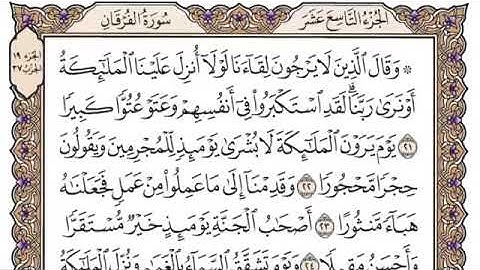 سُورَةُ الفُرْقَانِ
الجُزْءُ التَّاسِعَ عَشَرَ
الجزء ١٩
الحزب ٣٧
۞ وَقَالَ ٱلَّذِينَ لَا يَرْجُونَ لِقَآءَنَا لَوْلَآ أُنزِلَ عَلَيْنَا ٱلْمَلَٰٓئِكَةُ
أَوْ نَرَىٰ رَبَّنَا ۗ لَقَدِ ٱسْتَكْبَرُوا۟ فِىٓ أَنفُسِهِمْ وَعَتَوْ عُتُوًّا كَبِيرًا
٢١ يَوْمَ يَرَوْنَ ٱلْمَلَٰٓئِكَةَ لَا بُشْرَىٰ يَوْمَئِذٍ لِّلْمُجْرِمِينَ وَيَقُولُونَ
حِجْرًا مَّحْجُورًا ٢٢ وَقَدِمْنَآ إِلَىٰ مَا عَمِلُوا۟ مِنْ عَمَلٍ فَجَعَلْنَٰهُ
هَبَآءً مَّنثُورًا ٢٣ أَصْحَٰبُ ٱلْجَنَّةِ يَوْمَئِذٍ خَيْرٌ مُّسْتَقَرًّا
وَأَحْسَنُ مَقِيلًا ٢٤ وَيَوْمَ تَشَقَّقُ ٱلسَّمَآءُ بِٱلْغَمَٰمِ وَنُزِّلَ ٱلْمَلَٰٓئِكَةُ